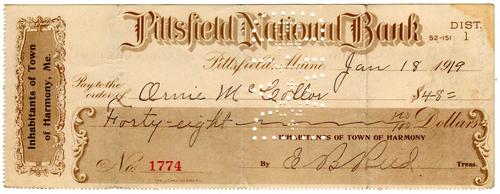 Pittsfield National Bank
DIST.
52-151 1
Inhabitants of Town
of Harmony, Me.
Pittsfield, Maine Jan 18 1919
Pay to the
order of Ornie McCollor $48=
Forty-eight no/100 Dollars
INHABITANTS OF TOWN OF HARMONY
No. 1774 By E B Reed Treas.